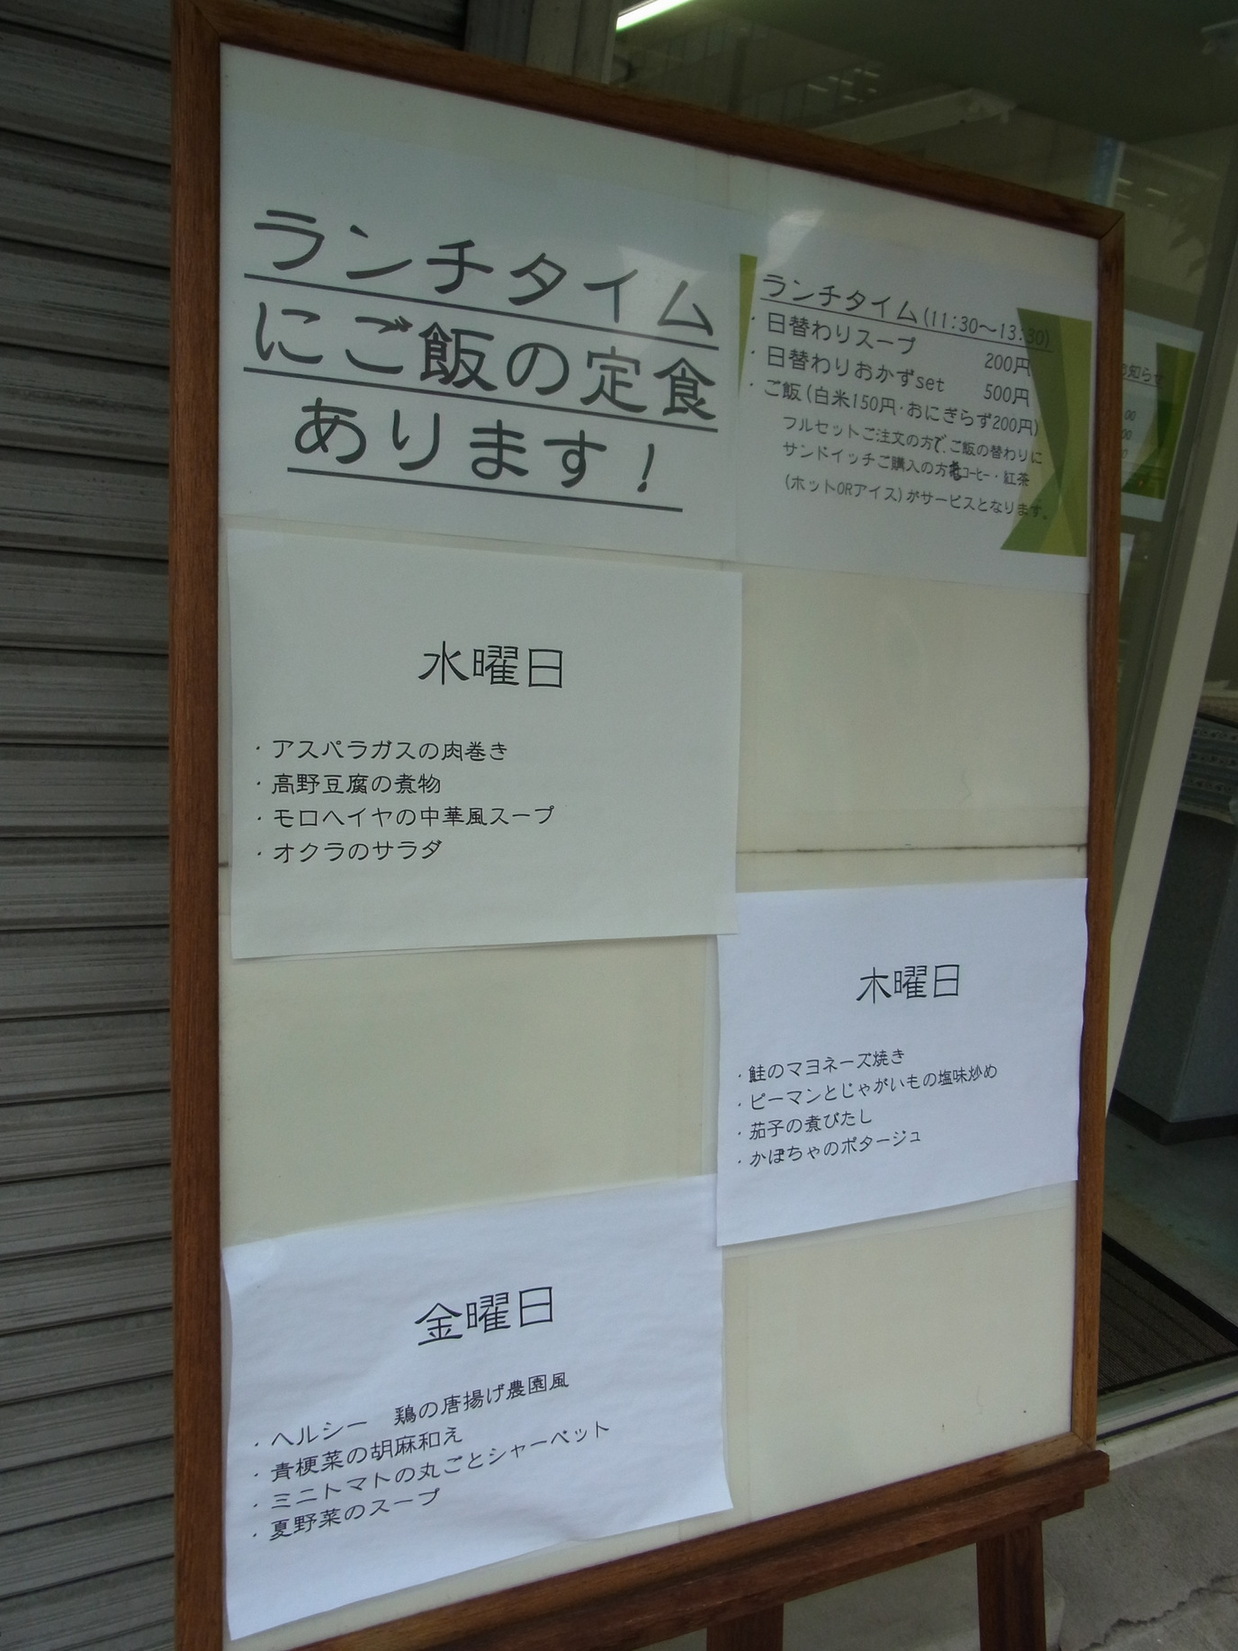 ランチタイム
にご飯の定食
あります！
ランチタイム(11:30～13:30)
・日替わりスープ 200円
・日替わりおかずset 500円
・ご飯(白米150円・おにぎらず200円)
フルセットご注文の方で、ご飯の替わりに
サンドイッチご購入の方もコーヒー・紅茶
(ホットORアイス)がサービスとなります。
お知らせ
水曜日
・アスパラガスの肉巻き
・高野豆腐の煮物
・モロヘイヤの中華風スープ
・オクラのサラダ
木曜日
・鮭のマヨネーズ焼き
・ピーマンとじゃがいもの塩味炒め
・茄子の煮びたし
・かぼちゃのポタージュ
金曜日
・ヘルシー　鶏の唐揚げ農園風
・青梗菜の胡麻和え
・ミニトマトの丸ごとシャーベット
・夏野菜のスープ